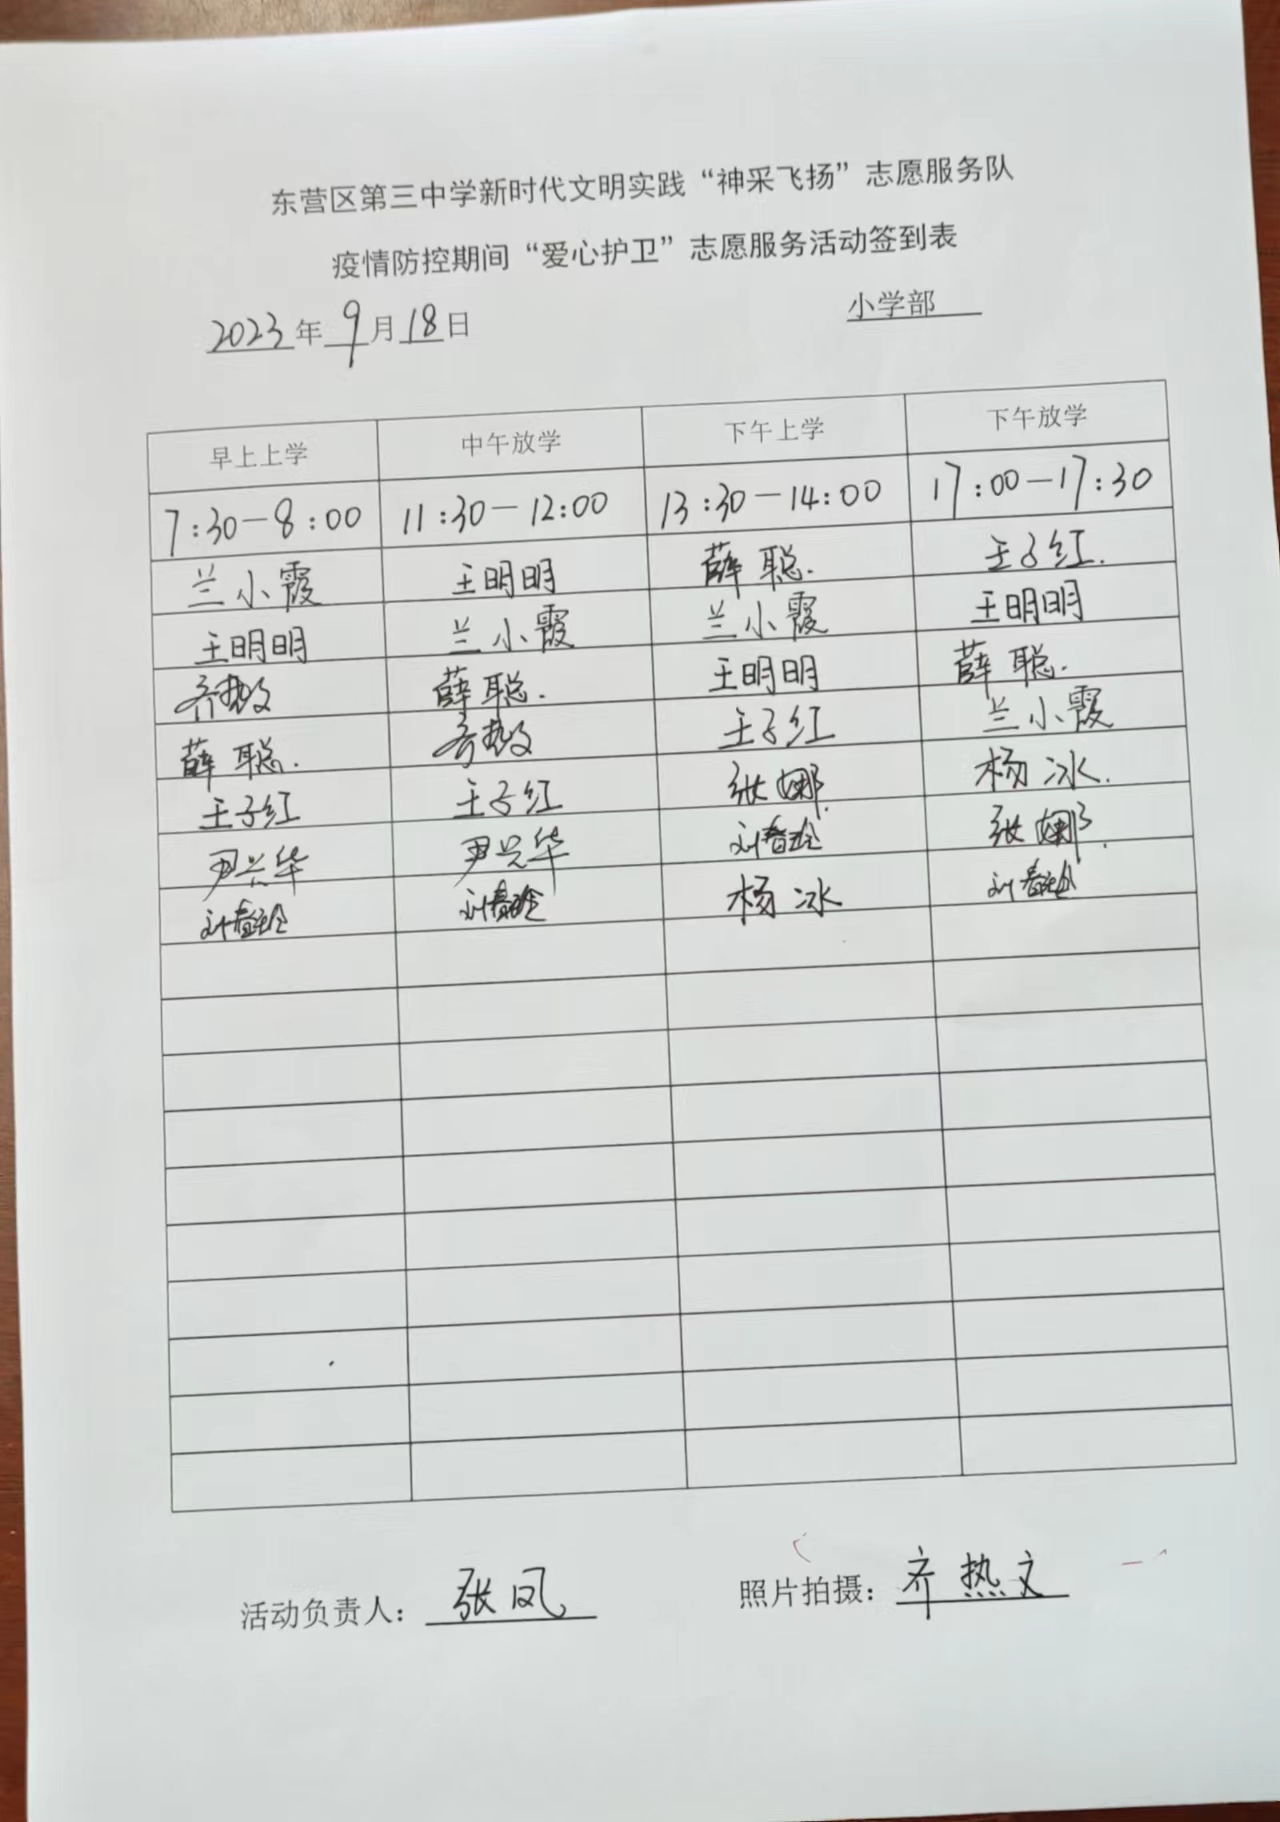 东营区第三中学新时代文明实践“神采飞扬”志愿服务队
疫情防控期间“爱心护卫”志愿服务活动签到表
2023年9月18日 小学部
早上上学 中午放学 下午上学 下午放学
7:30-8:00 11:30-12:00 13:30-14:00 17:00-17:30
兰小霞 王明明 薛聪. 王子红.
王明明 兰小霞 兰小霞 王明明
齐热文 薛聪. 王明明 薛聪.
薛聪. 齐热文 王子红 兰小霞
王子红 王子红 张娜. 杨冰.
尹兴华 尹兴华 刘春玲 张娜.
刘春玲 刘春玲 杨冰 刘春玲
活动负责人：张凤 照片拍摄：齐热文